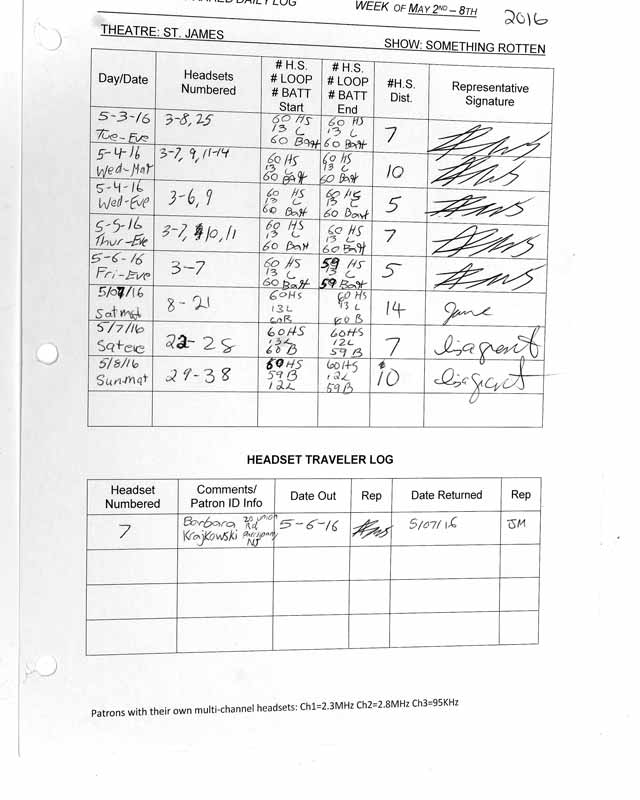 DAILY LOG
WEEK OF MAY 2ND – 8TH
2016
THEATRE: ST. JAMES
SHOW: SOMETHING ROTTEN
Day/Date Headsets Numbered # H.S. # LOOP # BATT Start # H.S. # LOOP # BATT End #H.S. Dist. Representative Signature
5-3-16 Tue-Eve 3-8, 25 60 HS 13 L 60 Batt 60 HS 13 L 60 Batt 7
5-4-16 Wed-Mat 3-7, 9, 11-14 60 HS 13 L 60 Batt 60 HS 13 L 60 Batt 10
5-4-16 Wed-Eve 3-6, 9 60 HS 13 L 60 Batt 60 HS 13 L 60 Batt 5
5-5-16 Thur-Eve 3-7, 10, 11 60 HS 13 L 60 Batt 60 HS 13 L 60 Batt 7
5-6-16 Fri-Eve 3-7 60 HS 13 L 60 Batt 59 HS 13 L 59 Batt 5
5/07/16 Sat mat 8-21 60HS 13L 60B 60HS 13L 60B 14 June
5/7/16 Sat eve 22-28 60HS 13L 60B 60HS 12L 59B 7 lisa grant
5/8/16 Sun.mat 29-38 60HS 59B 12L 60HS 12L 59B 10 lisa grant
HEADSET TRAVELER LOG
Headset Numbered Comments/ Patron ID Info Date Out Rep Date Returned Rep
7 Barbara Krajkowski 20 Union Rd Parsippany NJ 5-6-16 5/07/16 JM
Patrons with their own multi-channel headsets: Ch1=2.3MHz Ch2=2.8MHz Ch3=95KHz